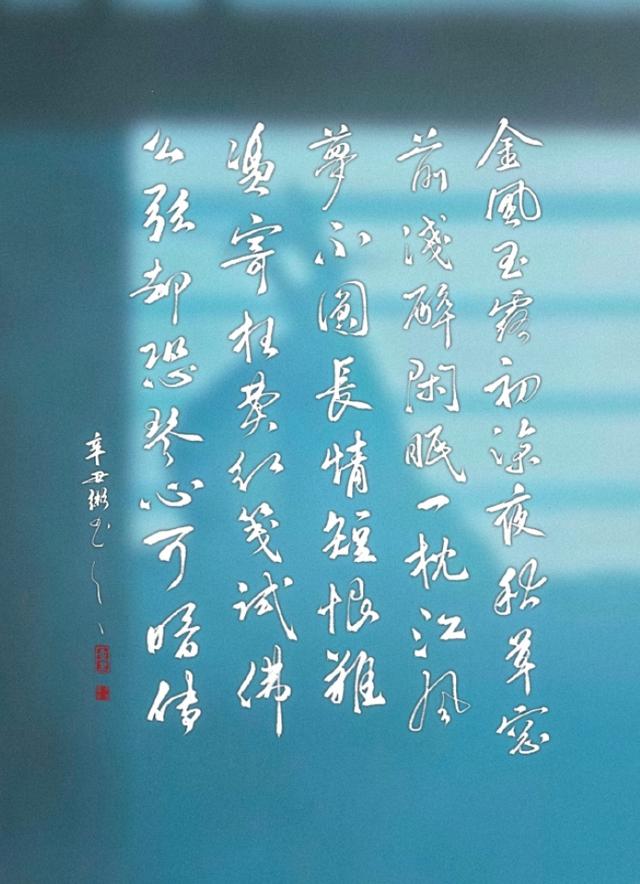 金風玉露初涼夜秋草窗
前淺醉閑眠一枕江風
夢不圓長情短恨難
憑寄枉費紅箋試拂
幺弦却恐琴心可暗傳
辛丑